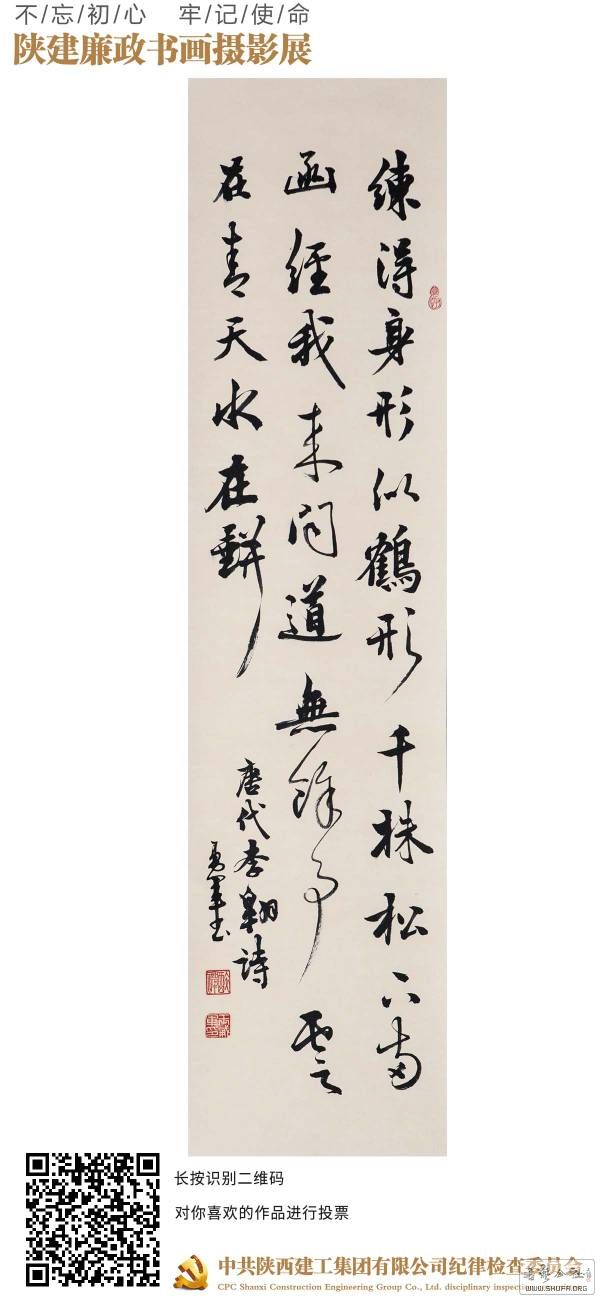 不/忘/初/心 牢/记/使/命
陕建廉政书画摄影展
練得身形似鶴形千株松下兩
函經我来问道無餘事雲
在青天水在缾
唐代李翱詩
长按识别二维码
对你喜欢的作品进行投票
中共陕西建工集团有限公司纪律检查委员会
CPC Shanxi Construction Engineering Group Co., Ltd. disciplinary inspection
WWW.SHUFA.ORG